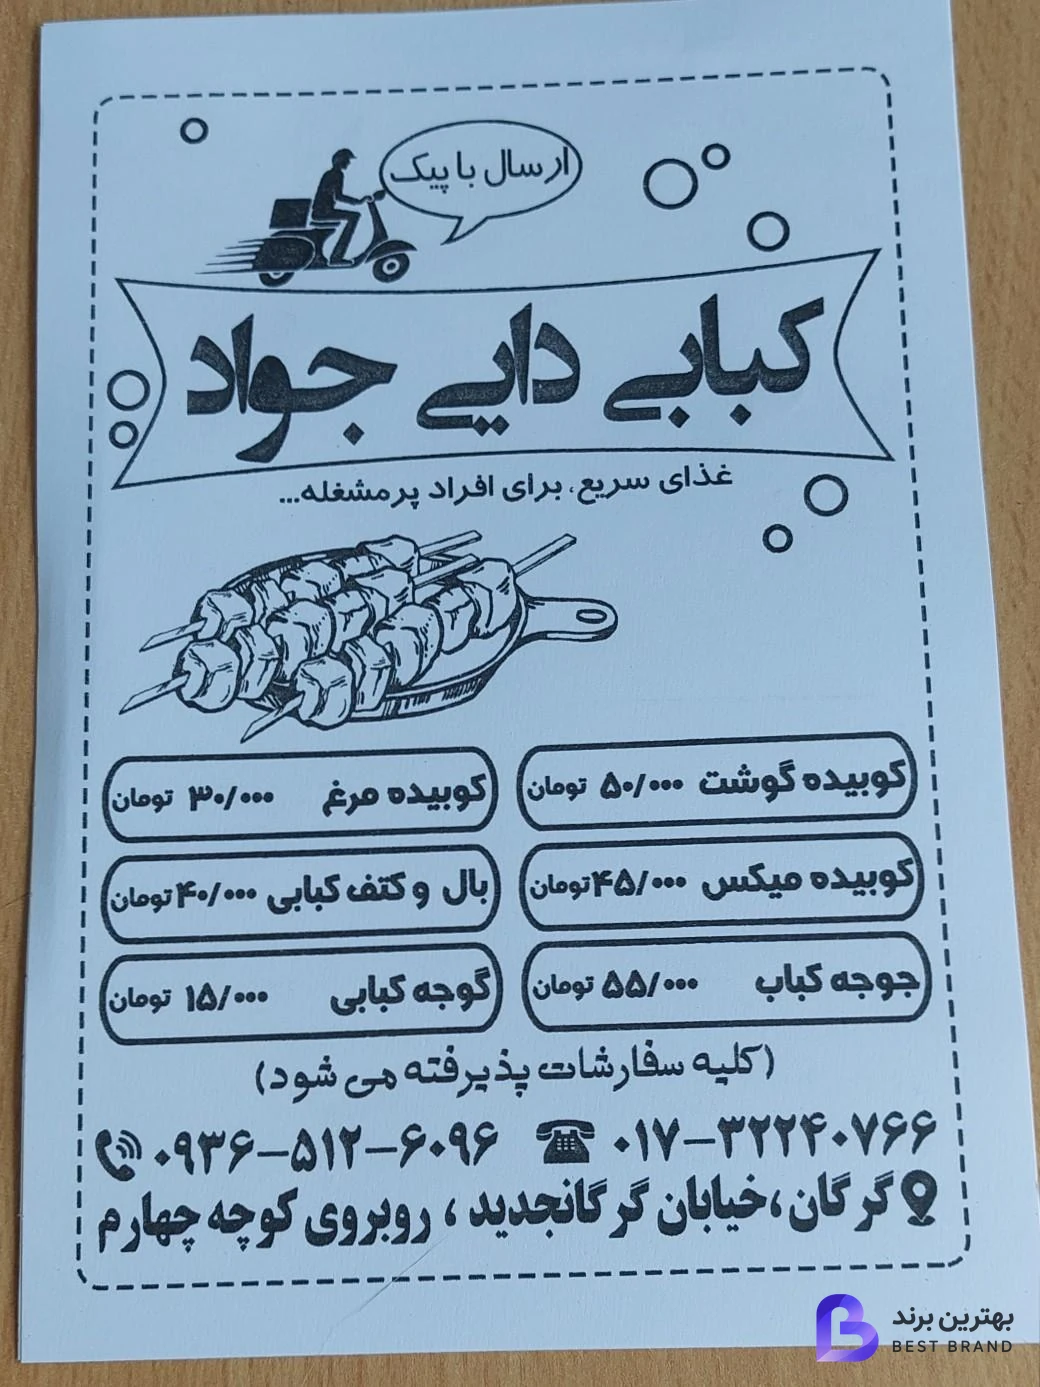 ارسال با پیک
کبابی دایی جواد
غذای سریع، برای افراد پرمشغله...
کوبیده گوشت ۵۰/۰۰۰ تومان
کوبیده مرغ ۳۰/۰۰۰ تومان
کوبیده میکس ۴۵/۰۰۰ تومان
بال و کتف کبابی ۴۰/۰۰۰ تومان
جوجه کباب ۵۵/۰۰۰ تومان
گوجه کبابی ۱۵/۰۰۰ تومان
(کلیه سفارشات پذیرفته می شود)
۰۱۷-۳۲۲۴۰۷۶۶
۰۹۳۶-۵۱۲-۶۰۹۶
گرگان، خیابان گرگانجدید، روبروی کوچه چهارم
بهترین برند
BEST BRAND